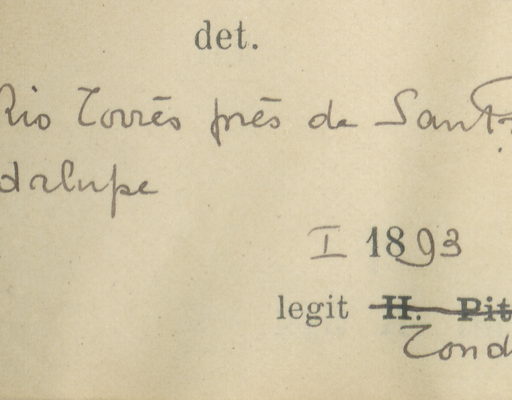 det.
Rio Torrès près de Sant
dalupe
I 1893
legit H. Pit
Tond